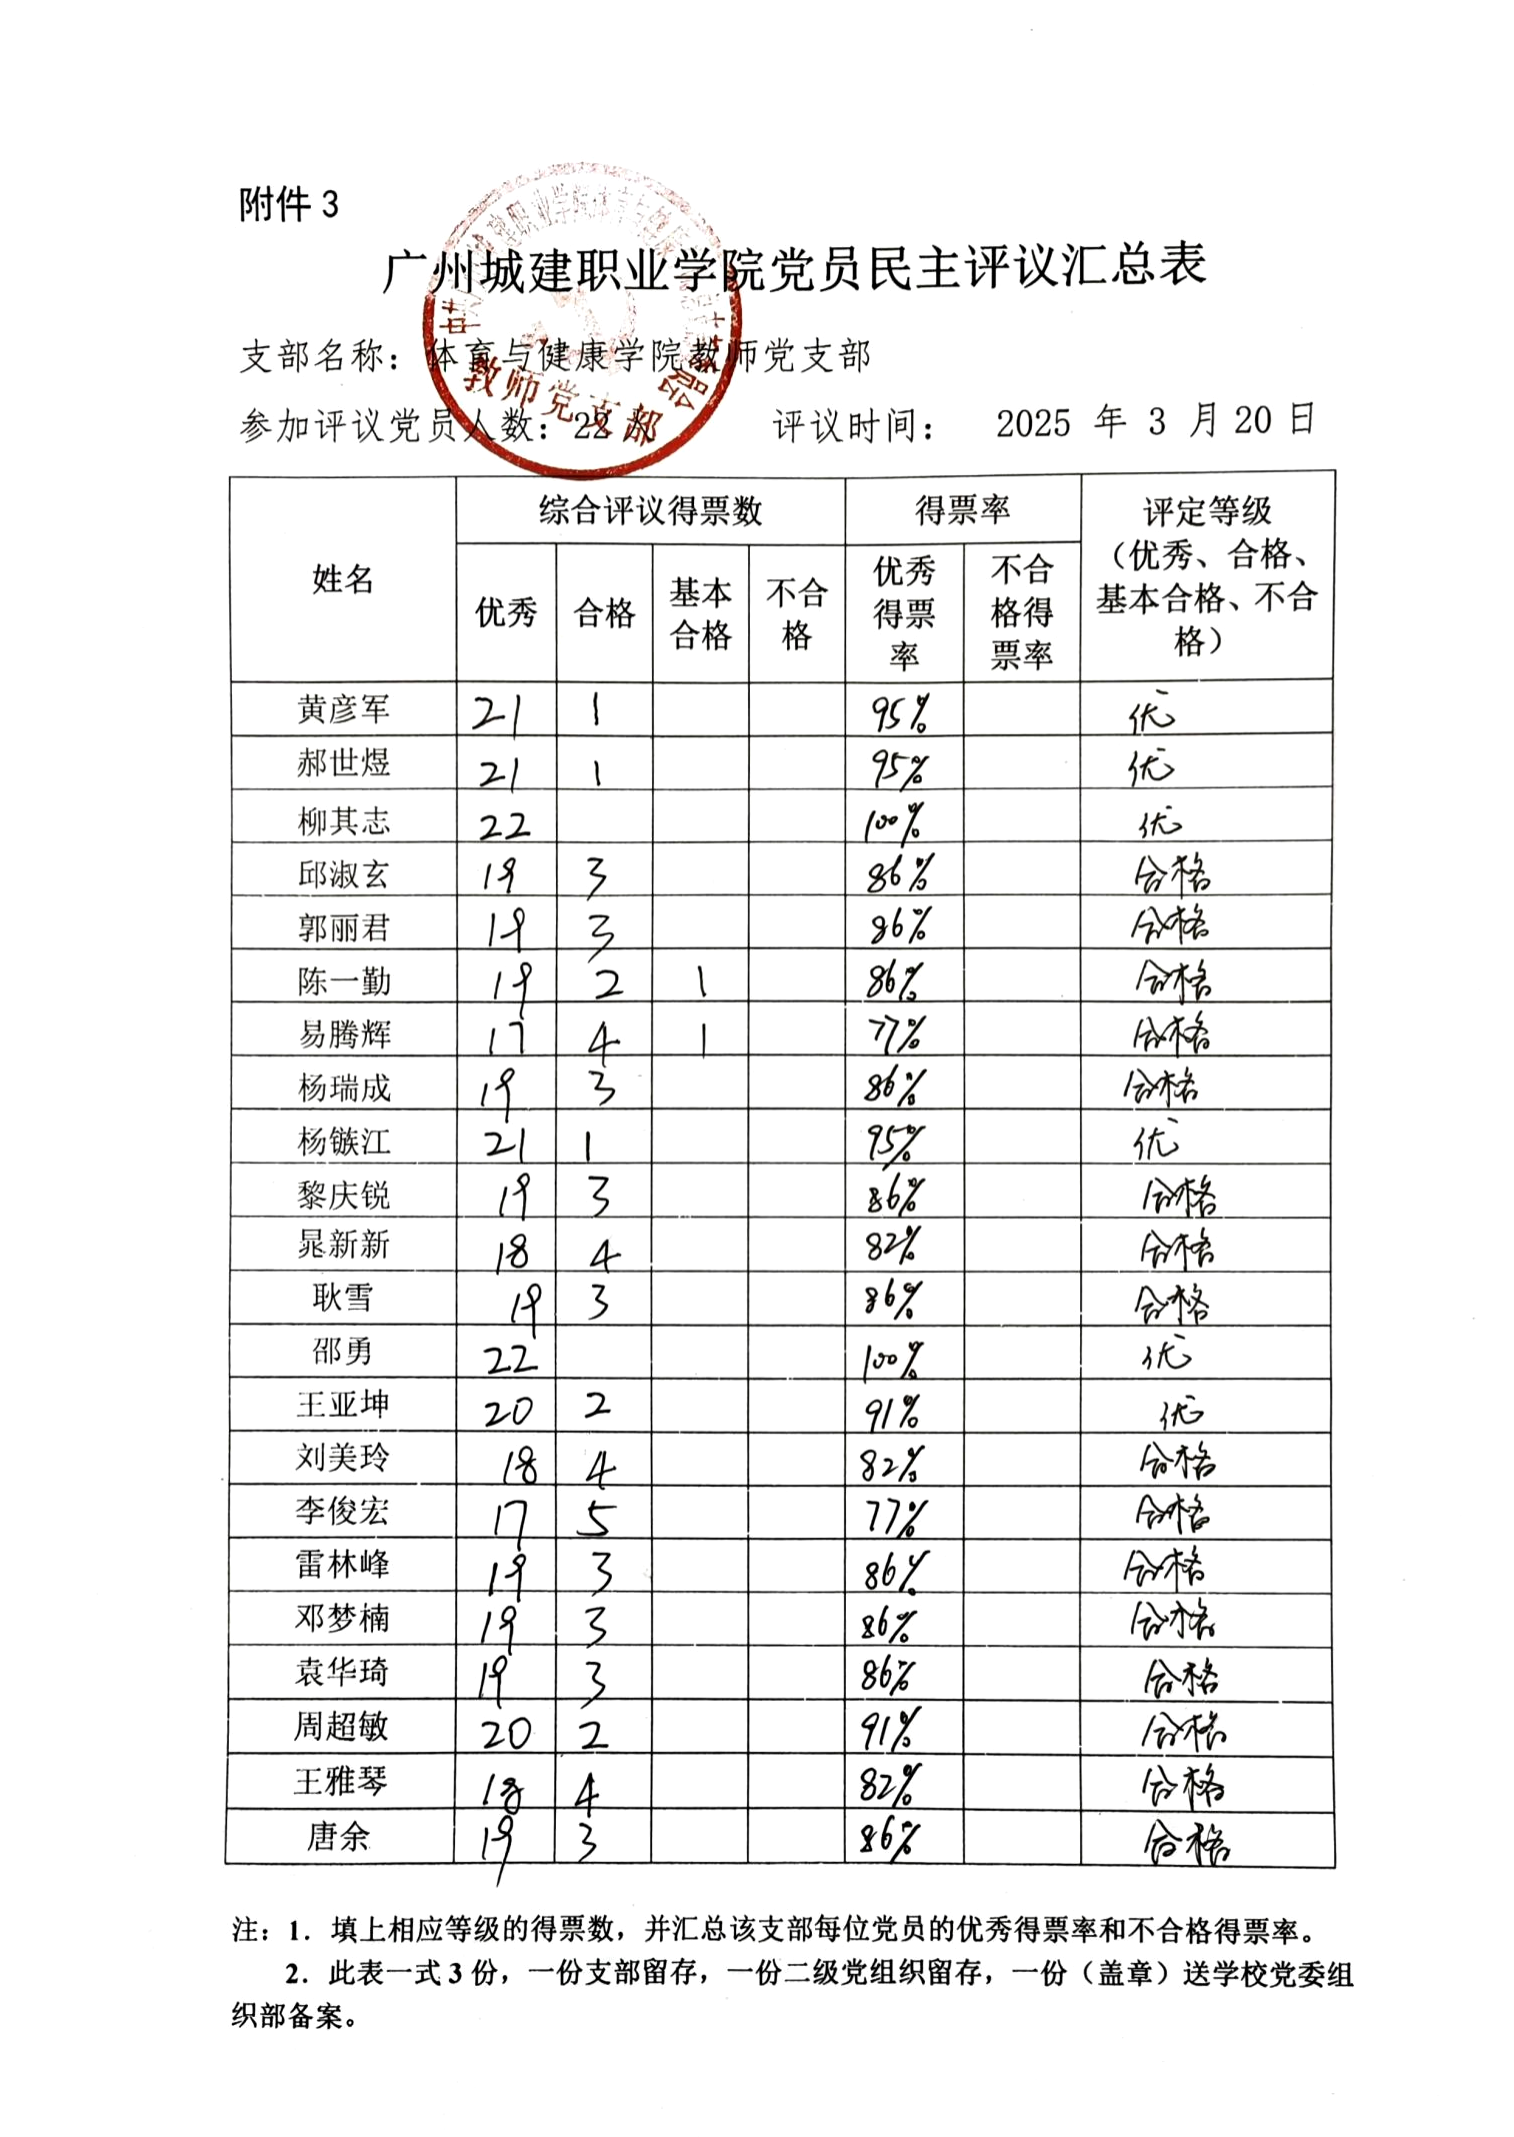 附件 3
广州城建职业学院党员民主评议汇总表
支部名称：体育与健康学院教师党支部
参加评议党员人数：22 评议时间： 2025 年 3 月 20 日
教师党支部
姓名 综合评议得票数 得票率 评定等级（优秀、合格、基本合格、不合格）
优秀 合格 基本合格 不合格 优秀得票率 不合格得票率
黄彦军 21 1 95% 优
郝世煜 21 1 95% 优
柳其志 22 100% 优
邱淑玄 19 3 86% 合格
郭丽君 19 3 86% 合格
陈一勤 19 2 1 86% 合格
易腾辉 17 4 1 77% 合格
杨瑞成 19 3 86% 合格
杨镞江 21 1 95% 优
黎庆锐 19 3 86% 合格
晁新新 18 4 82% 合格
耿雪 19 3 86% 合格
邵勇 22 100% 优
王亚坤 20 2 91% 优
刘美玲 18 4 82% 合格
李俊宏 17 5 77% 合格
雷林峰 19 3 86% 合格
邓梦楠 19 3 86% 合格
袁华琦 19 3 86% 合格
周超敏 20 2 91% 合格
王雅琴 18 4 82% 合格
唐余 19 3 86% 合格
注：1．填上相应等级的得票数，并汇总该支部每位党员的优秀得票率和不合格得票率。
2．此表一式 3 份，一份支部留存，一份二级党组织留存，一份（盖章）送学校党委组
织部备案。